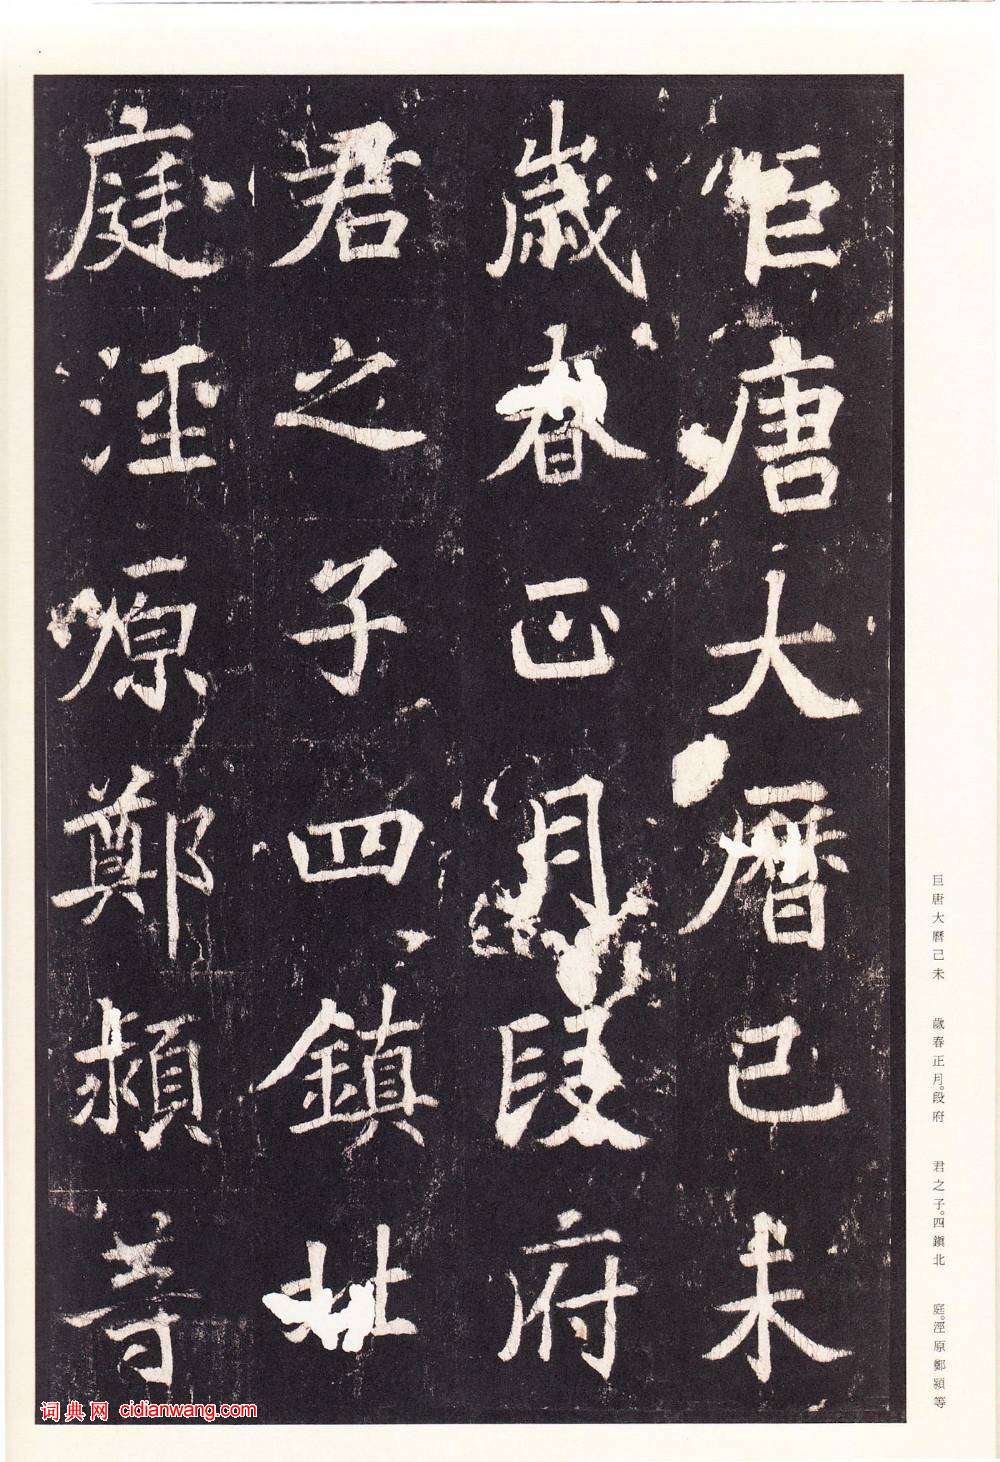 巨唐大曆己未
歲春正月段府
君之子四鎮北
庭涇原鄭潁等
巨唐大曆己未 歲春正月。段府 君之子。四鎮北 庭。涇原鄭潁等
词典网 cidianwang.com